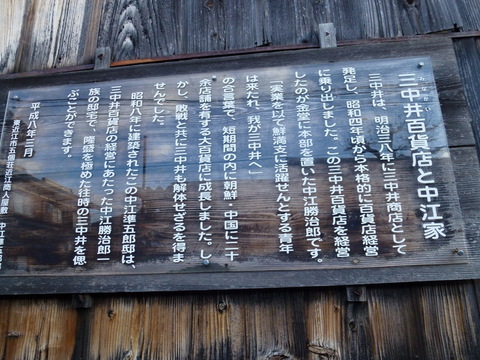 三中井百貨店と中江家
みなかい
三中井は、明治三八年に三中井商店として
発足し、昭和四年頃から本格的に百貨店経営
に乗り出しました。この三中井百貨店を経営
したのが金堂に本部を置いた中江勝治郎です。
「実業を以て鮮満支に活躍せんとする青年
は来たれ、我が三中井へ」
の合言葉で、短期間の内に朝鮮・中国に二十
余店舗を有する大百貨店に成長しました。し
かし、敗戦と共に三中井も解体せざるを得ま
せんでした。
昭和八年に建築されたこの中江準五郎邸は、
三中井百貨店の経営にあたった中江勝治郎一
族の邸宅で、隆盛を極めた往時の三中井を偲
ぶことができます。
平成八年三月
東近江市五個荘近江商人屋敷